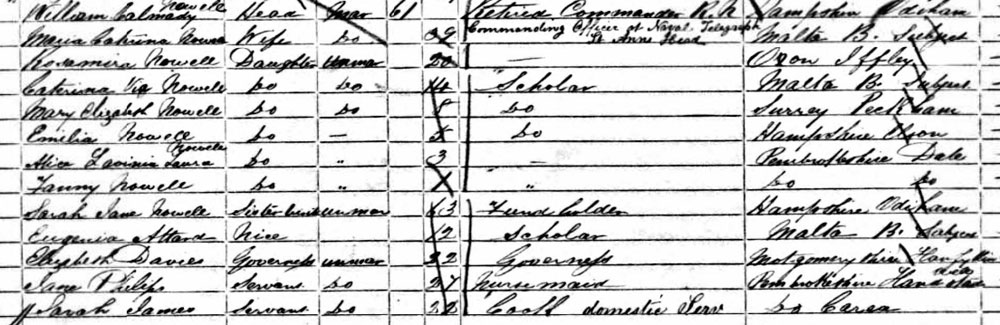 William Calmady Nowell Head Mar 61 Retired Commander R.N Hampshire Odiham
Maria Catrina Nowell Wife Do 39 Commanding Officer of Naval Telegraph St Anns Head Malta B. Subject
Rosamira Nowell Daughter Unmar 20 — Oxon Iffley
Catrina Nowell Do Do 14 Scholar Malta B. Subject
Mary Elizabeth Nowell Do Do 8 Do Surrey Peckham
Emilia Nowell Do — Do Hampshire
Alice Lavinia Laura Nowell Do " 3 — Pembrokeshire Dale
Fanny Nowell Do " " Do Do
Sarah Jane Nowell Sister unmar 63 Fund holder Hampshire Odiham
Eugenia Attard Nice 12 Scholar Malta B. Subject
Elizabeth Davies Governess unmar 22 Governess Montgomeryshire
Jane Philips Servant Do 27 Nurse maid Pembrokeshire
Sarah James Servant Do 22 Cook domestic Serv Do Carew